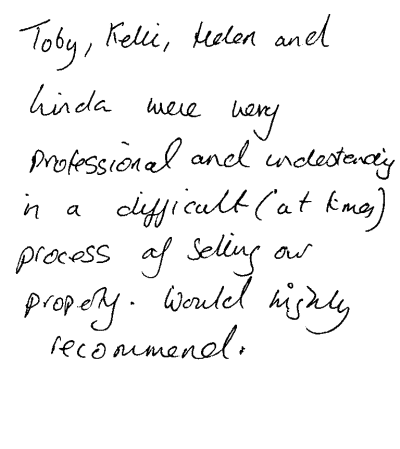 Toby, Kelli, Helen and
Linda were very
professional and understanding
in a difficult (at times)
process of selling our
property. Would highly
recommend.